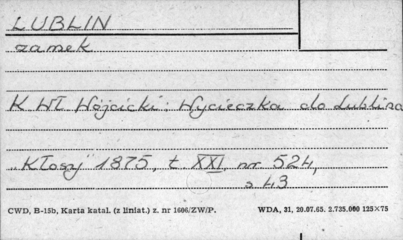 LUBLIN
zamek
K Wł Wójcicki: Wycieczka do Lublina
„Kłosy" 1875, t XXI, nr 524,
s 43
CWD, B-15b, Karta katal. (z liniat.) z. nr 1606/ZW/P. WDA, 31, 29.07.65. 2.735.000 125×75